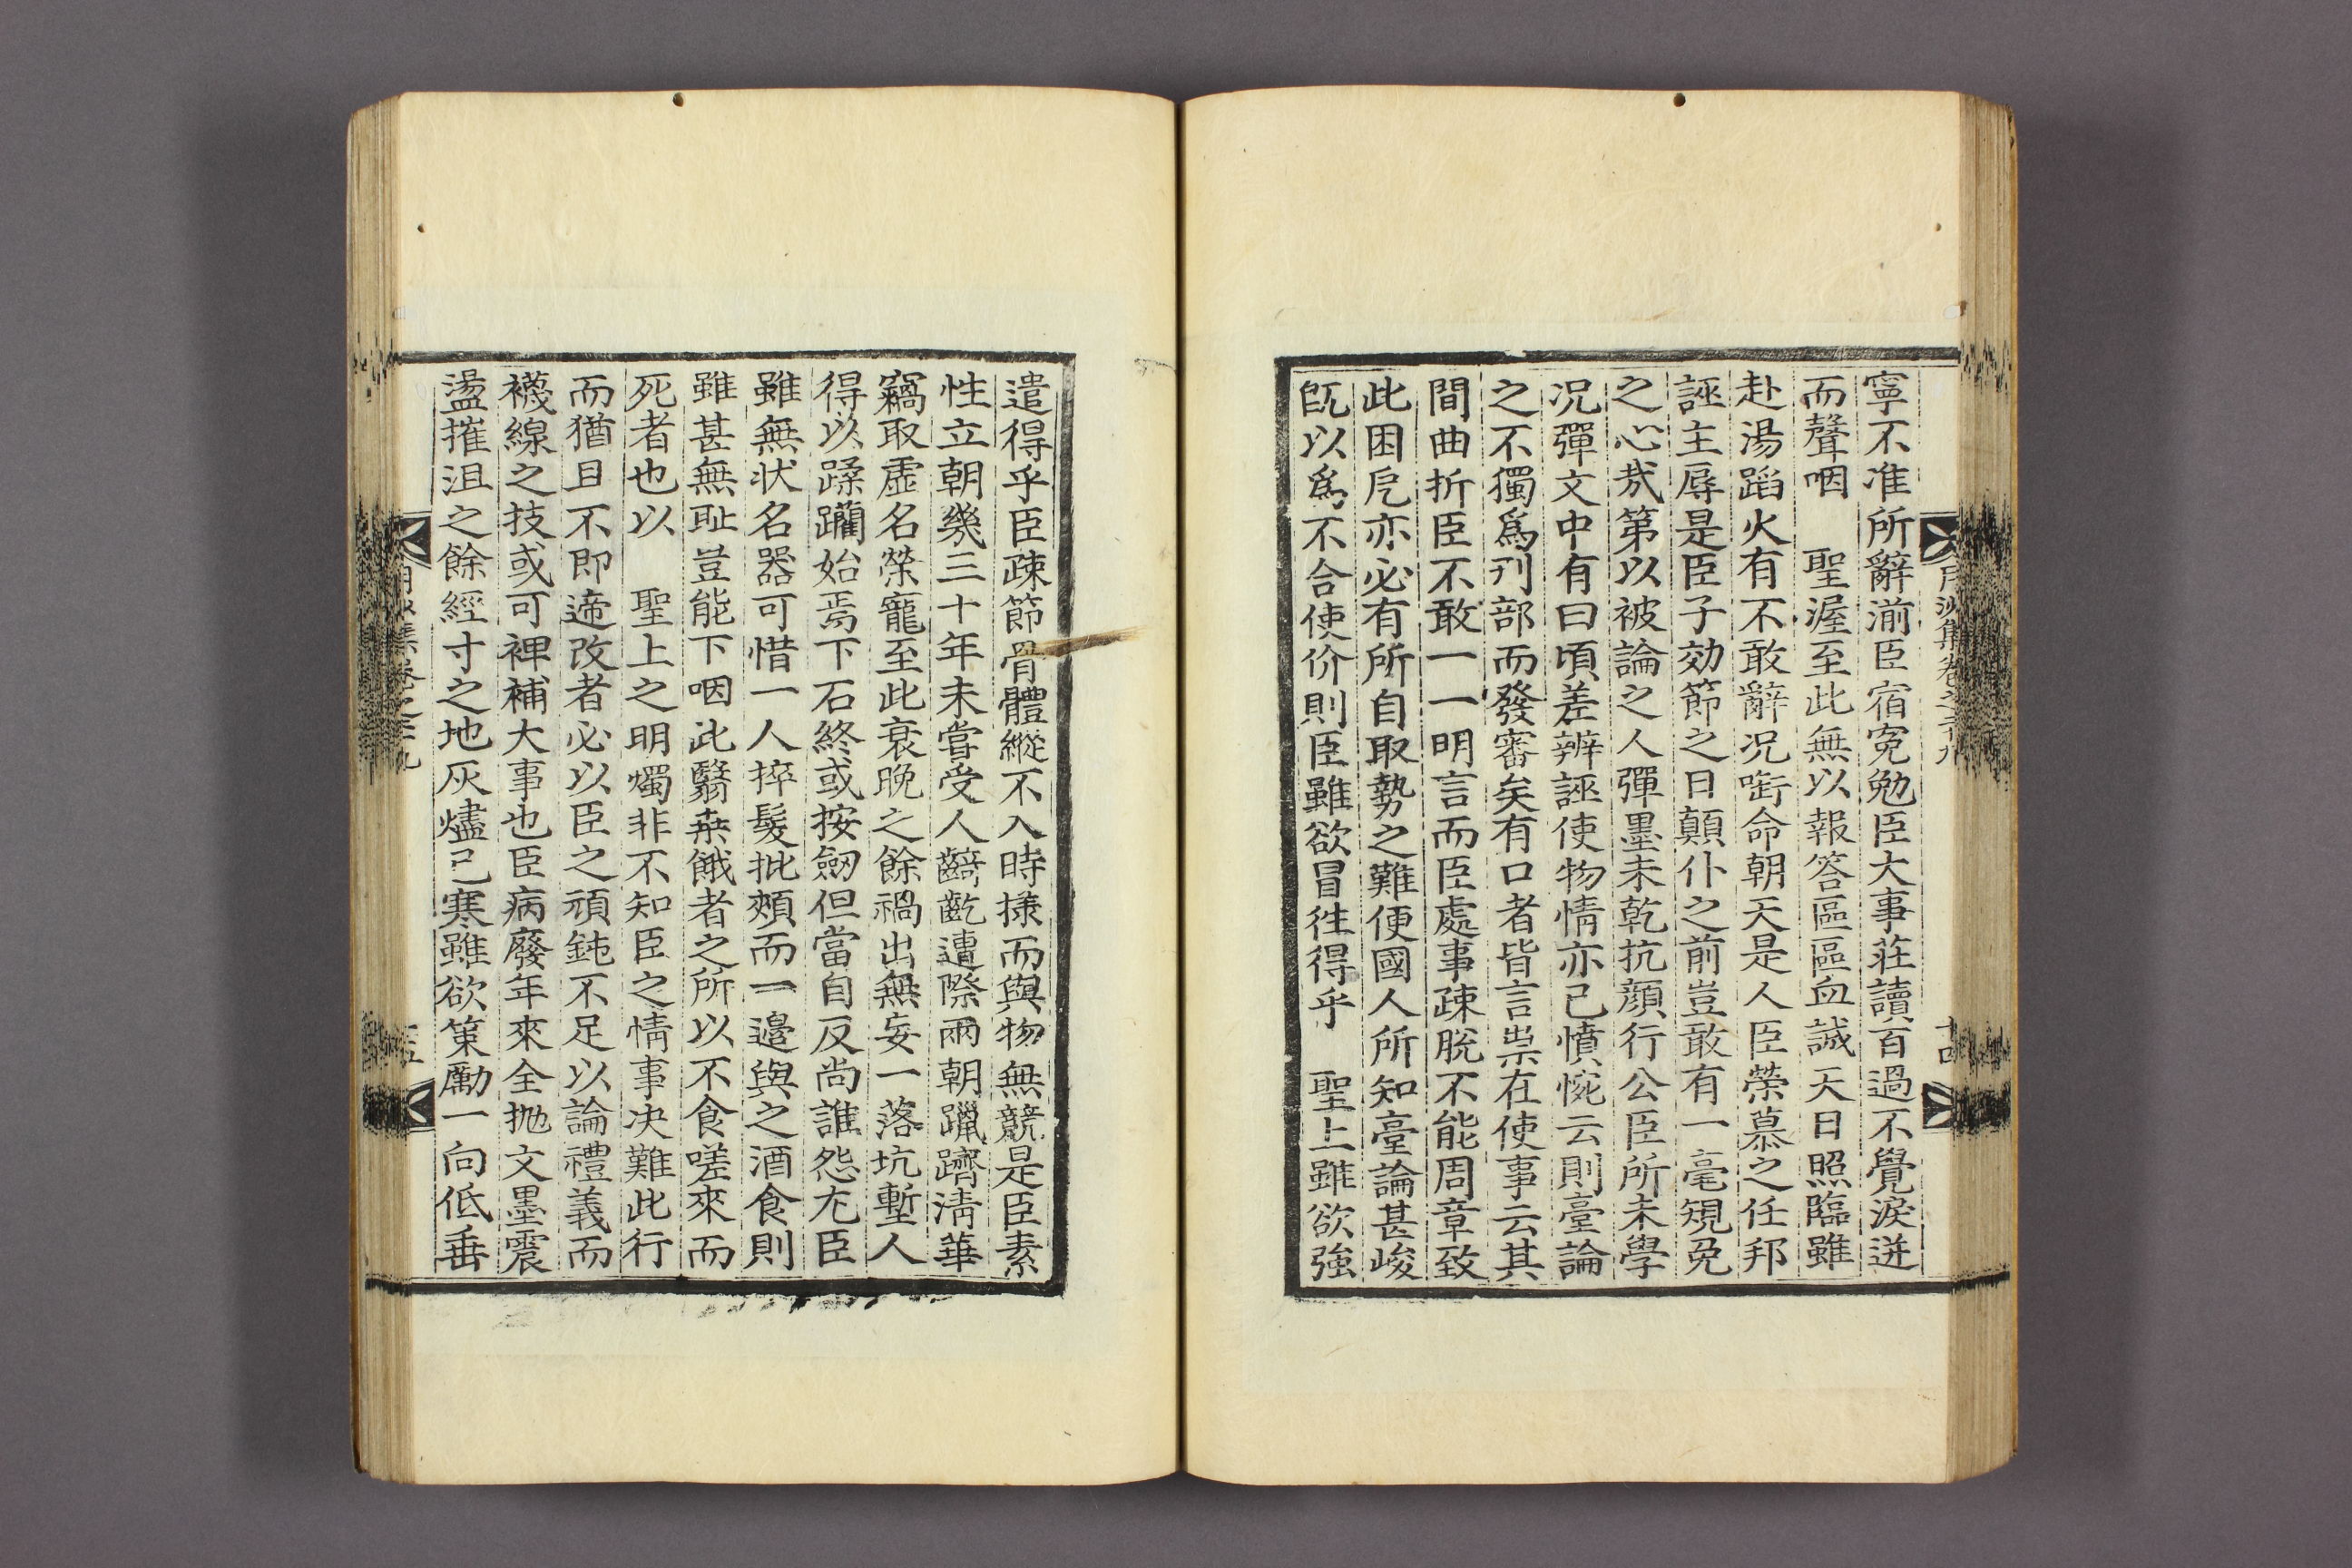 寧不准所辭湔臣宿寃勉臣大事莊讀百過不覺淚迸
而聲咽　聖渥至此無以報答區區血誠天日照臨雖
赴湯蹈火有不敢辭况啣命朝天是人臣榮慕之任邦
誣主辱是臣子効節之日顛仆之前豈敢有一毫規免
之心㢤第以被論之人彈墨未乾抗顔行公臣所未學
况彈文中有曰頃差辨誣使物情亦已憤惋云則臺論
之不獨爲刋部而發審矣有口者皆言祟在使事云其
間曲折臣不敢一一明言而臣處事疎脫不能周章致
此困戹亦必有所自取勢之難便國人所知臺論甚峻
旣以爲不合使价則臣雖欲冒徃得乎　聖上雖欲強
遣得乎臣疎節骨體縱不入時㨾而與物無競是臣素
性立朝幾三十年未嘗受人齮齕遭際兩朝躐躋淸華
竊取虛名榮寵至此衰晩之餘禍出無妄一落坑塹人
得以蹂躪始焉下石終或按劒但當自反尙誰怨尤臣
雖無狀名器可惜一人捽髮批頰而一邊與之酒食則
雖甚無耻豈能下咽此翳桒餓者之所以不食嗟來而
死者也以　聖上之明燭非不知臣之情事决難此行
而猶且不即遞改者必以臣之頑鈍不足以論禮義而
襪線之技或可裨補大事也臣病廢年來全抛文墨震
盪摧沮之餘經寸之地灰燼已寒雖欲策勵一向低垂
月沙集卷之二十九
十四